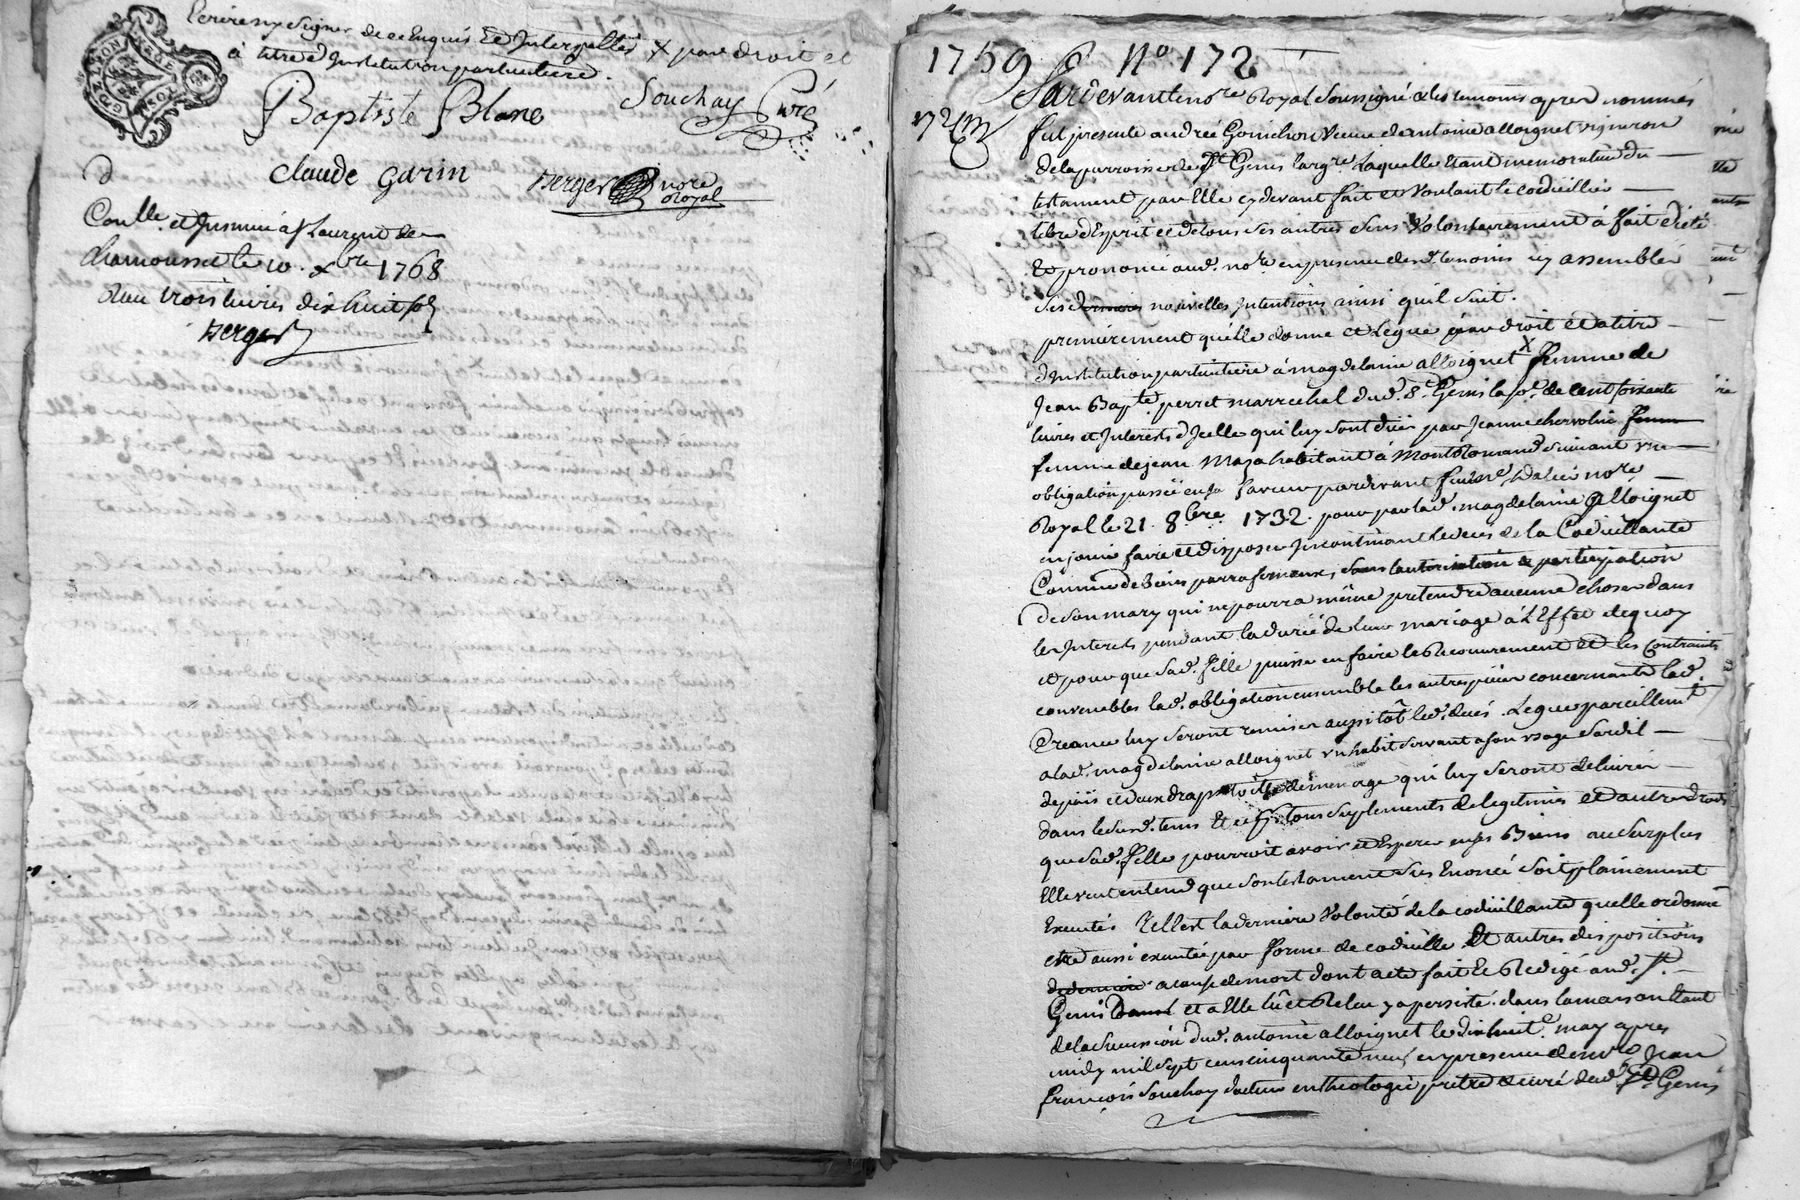 Ecrire ny signer de ce enquis et Interpellés X par droit et
à titre d'Institution particuliere.
Baptiste Blanc
Souchay Curé
Claude garin
Berger nore Royal
Conlle. et Insinué à St Laurent de
chamousset le 10. xbre 1768
Reçu trois livres dix huit s
Berger
1759 No. 172
172
Pardevant le nore Royal soussigné & les temoins apres nommés
fut presente andrée Goinchon Veuve de antoine alloignet vigneron
de la parroisse de St Genis Largre. Laquelle étant memorative du
testament par Elle cy devant fait et Voulant le codiciller
libre d'Esprit et de tous ses autres sens Volontairement à fait dicté
et prononcé aud. nore. en presence desd. temoins cy assemblés
ses nouvelles Intentions ainsi quil suit.
premièrement qu'elle donne et Legue par droit et à titre
d'Institution particuliere à magdelaine alloignet X femme de
Jean Bapte. perret marrechal dud. St. Genis la so. de cent soixante
livres et Interets d'Icelle qui luy sont dües par Jeanne chervolin
femme de jean Maza habitant à Montromand suivant une
obligation passée en sa faveur pardevant nore.
Royal le 21. 8bre. 1732. pour par lad. magdelaine alloignet
en jouir faire et disposer Incontinant le deces de la Codicillante
Comme de Biens parrafernaux, sans l'autorisation & participation
de son mary qui ne pourra même pretendre aucune chose dans
les Interets pendant la durée de leur mariage à L'Effet de quoy
et pour que sad. fille puisse en faire le Recouvrement et les Contraintes
convenables lad. obligation ensemble les autres pieces concernante lad.
Creance luy seront remises aussitôt led. deces. Legue pareillemt
a lad. magdelaine alloignet un habit servant a son usage
depuis et deux draps toile de menage qui luy seront delivrés
dans le susd. tems Et ce pr tous suplements de legitimes et autres droits
que sad. fille pourroit avoir et Esperer en ses Biens au surplus
Elle veut entend que son testament sus Enoncé soit plainement
Executé. Telle est la derniere Volonté de la codicillante quelle ordonne
etre aussi executée par forme de codicille Et autres dispositions
a cause de mort dont acte fait et Redigé aud. St.
Genis et a Elle lû et Relu y a persisté. dans la maison Etant
de la succession dud. antoine alloignet le dixhuite. may apres
midy mil sept cens cinquante neuf en presence de mre Jean
françois Souchay docteur en theologie prêtre & curé dud. St. Genis